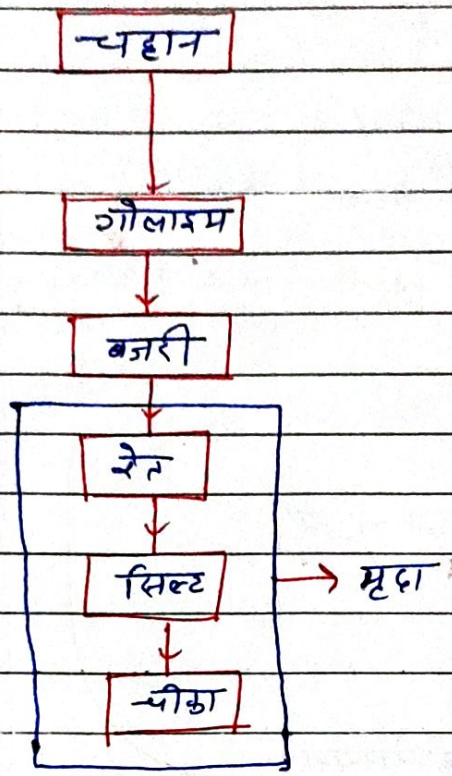 चट्टान
गोलाश्म
बजरी
रेत
सिल्ट
मृदा
चीका